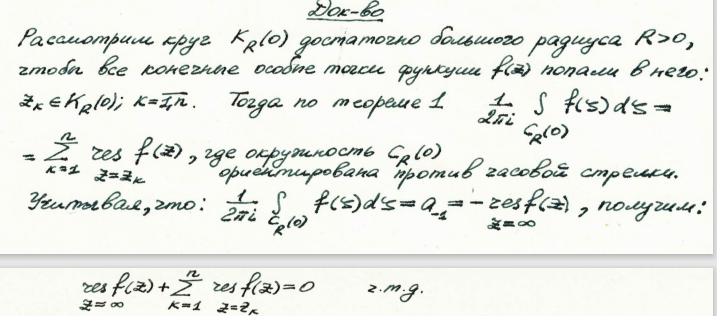 Док-во
Рассмотрим круг K_R(0) достаточно большого радиуса R>0,
чтобы все конечные особые точки функции f(z) попали в него:
z_k ∈ K_R(0); k=1,n. Тогда по теореме 1 1/2πi ∫_{C_R(0)} f(ζ)dζ =
= ∑_{k=1}^{n} res_{z=z_k} f(z), где окружность C_R(0)
ориентирована против часовой стрелки.
Учитывая, что: 1/2πi ∫_{C_R(0)} f(ζ)dζ = a_{-1} = - res_{z=∞} f(z), получим:
res_{z=∞} f(z) + ∑_{k=1}^{n} res_{z=z_k} f(z) = 0 ч.т.д.